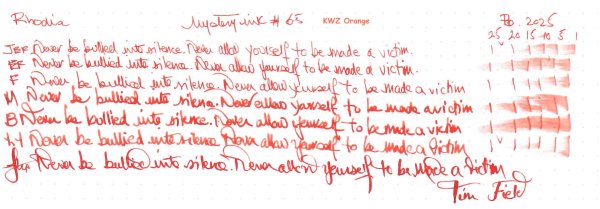 Rhodia Mystery ink # 65 KWZ Orange Feb. 2025
25 20 15 10 5 1
JEF Never be bullied into silence. Never allow yourself to be made a victim.
EF Never be bullied into silence. Never allow yourself to be made a victim.
F Never be bullied into silence. Never allow yourself to be made a victim
M Never be bullied into silence. Never allow yourself to be made a victim
B Never be bullied into silence. Never allow yourself to be made a victim
Never be bullied into silence. Never allow yourself to be made a victim
Never be bullied into silence. Never allow yourself to be made a victim
Tim Field